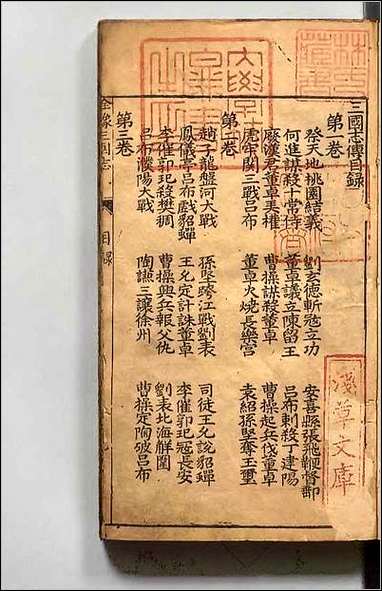 三國志傳目錄
第一卷
祭天地桃園結義 劉玄德斬冦立功 安喜縣張飛鞭督郵
何進謀殺十常侍 董卓議立陳留王 呂布刺殺丁建陽
廢漢君董卓弄權 曹操謀殺董卓 曹操起兵伐董卓
虎牢関三戰呂布 董卓火燒長樂宮 袁紹孫堅奪玉璽
第二卷
趙子龍盤河大戰 孫堅跨江戰劉表 司徒王允說貂蟬
鳳儀亭呂布戯貂蟬 王允定計誅董卓 李傕郭汜冦長安
李傕郭汜殺樊稠 曹操興兵報父仇 劉表北海鮮圍
第三卷
呂布濮陽大戰 陶謙三讓徐州 曹操定陶破呂布
全像三國志
目錄
淺草文庫